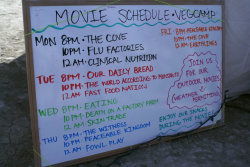 MOVIE SCHEDULE • VEGCAMP
MON 8PM • THE COVE
10PM • FLU FACTORIES
12AM • CLINICAL NUTRITION
TUE 8PM • OUR DAILY BREAD
10PM • THE WORLD ACCORDING TO MONSANTO
12AM • FAST FOOD NATIONS
WED 8PM • EATING
10PM • DEATH ON A FACTORY FARM
12AM • SKIN TRADE
THU 8PM • THE WITNESS
10PM • PEACEABLE KINGDOM
12AM • FOWL PLAY
FRI 8PM • PEACEABLE KINGDOM
10PM • THE COVE
12AM • EARTHLINGS
JOIN US
FOR OUR
OUTDOOR MOVIES
(WEATHER
PERMITTING)
ENJOY OUR SNACKS
DURING THE MOVIE